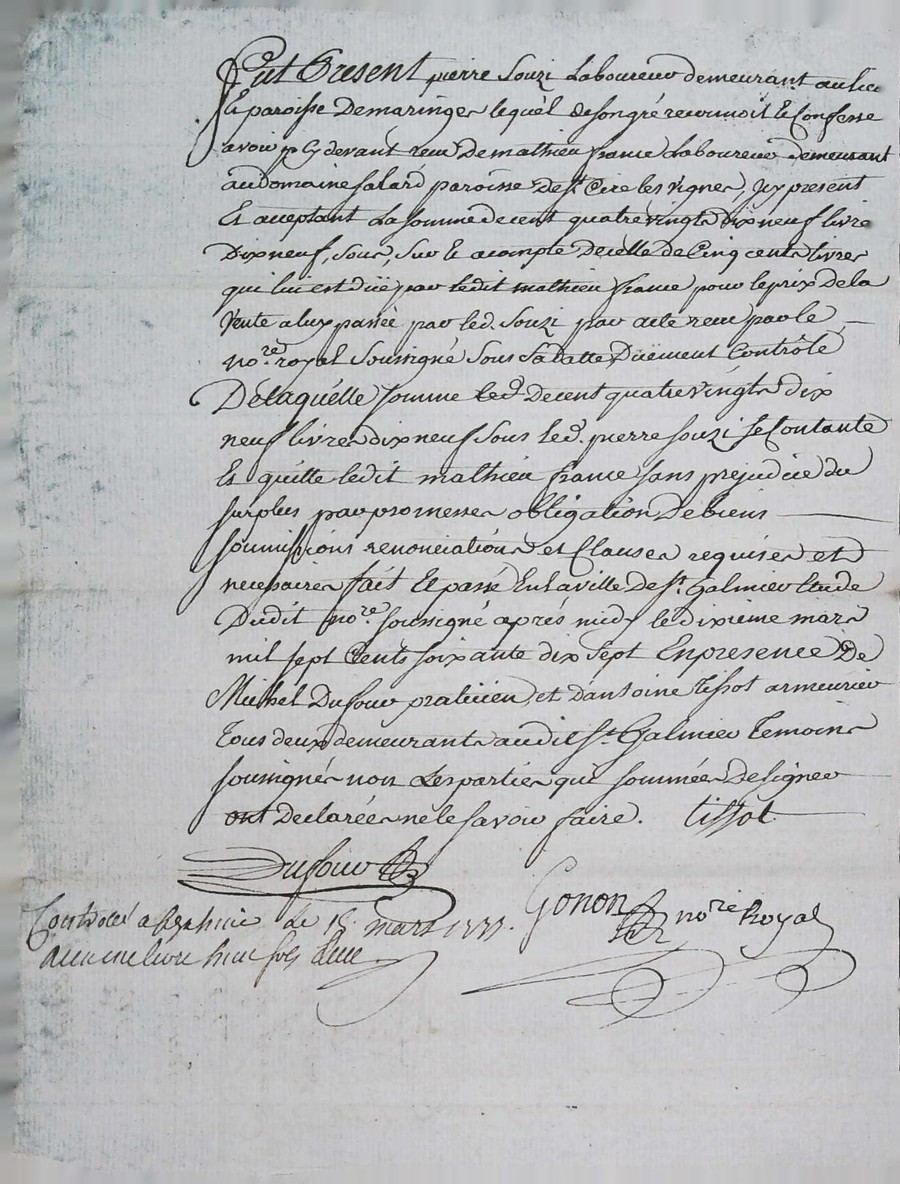 Fut Present pierre Souzi Laboureur demeurant au lieu
Et paroisse Demaringes lequel de son gré reconnoit Et Confesse
avoir cy devant receu De mathieu france Laboureur demeurant
au domaine Salard paroisse De St Cire les vignes, Icy present
Et acceptant La somme de cent quatre vingts dix neuf livre
Dix neuf, sous, sur Et acompte De celle de Cinq cents livres
qui lui est düe par ledit mathieu france pour le prix de la
Vente a lux passée par led. Souzi par acte receu par le
no.re royal Soussigné Sous Sa datte Düement Contrôlé
De laquelle somme led De cent quatre vingts dix
neuf livres dix neuf Sous led. pierre Souzi se Contante
Et quitte ledit mathieu france sans prejudice du
surplus par promesses obligation De biens
soumissions renonciations et Clauses requises et
necessaires fait Et passé En la ville De St. Galmier Etude
Dudit no.re soussigné après midy le dixieme mars
mil sept Cents soixante dix Sept En presence De
Michel Dufour praticien et d'antoine Tissot armeurier
Tous deux demeurants audit St. Galmier Temoins
soussignés non Les parties qui sommées De signer
ont Declarées ne le savoir faire. tissot
Dufour
Gonon no.re Royal
Controlé a le 15 mars 1777.
livre huit sols